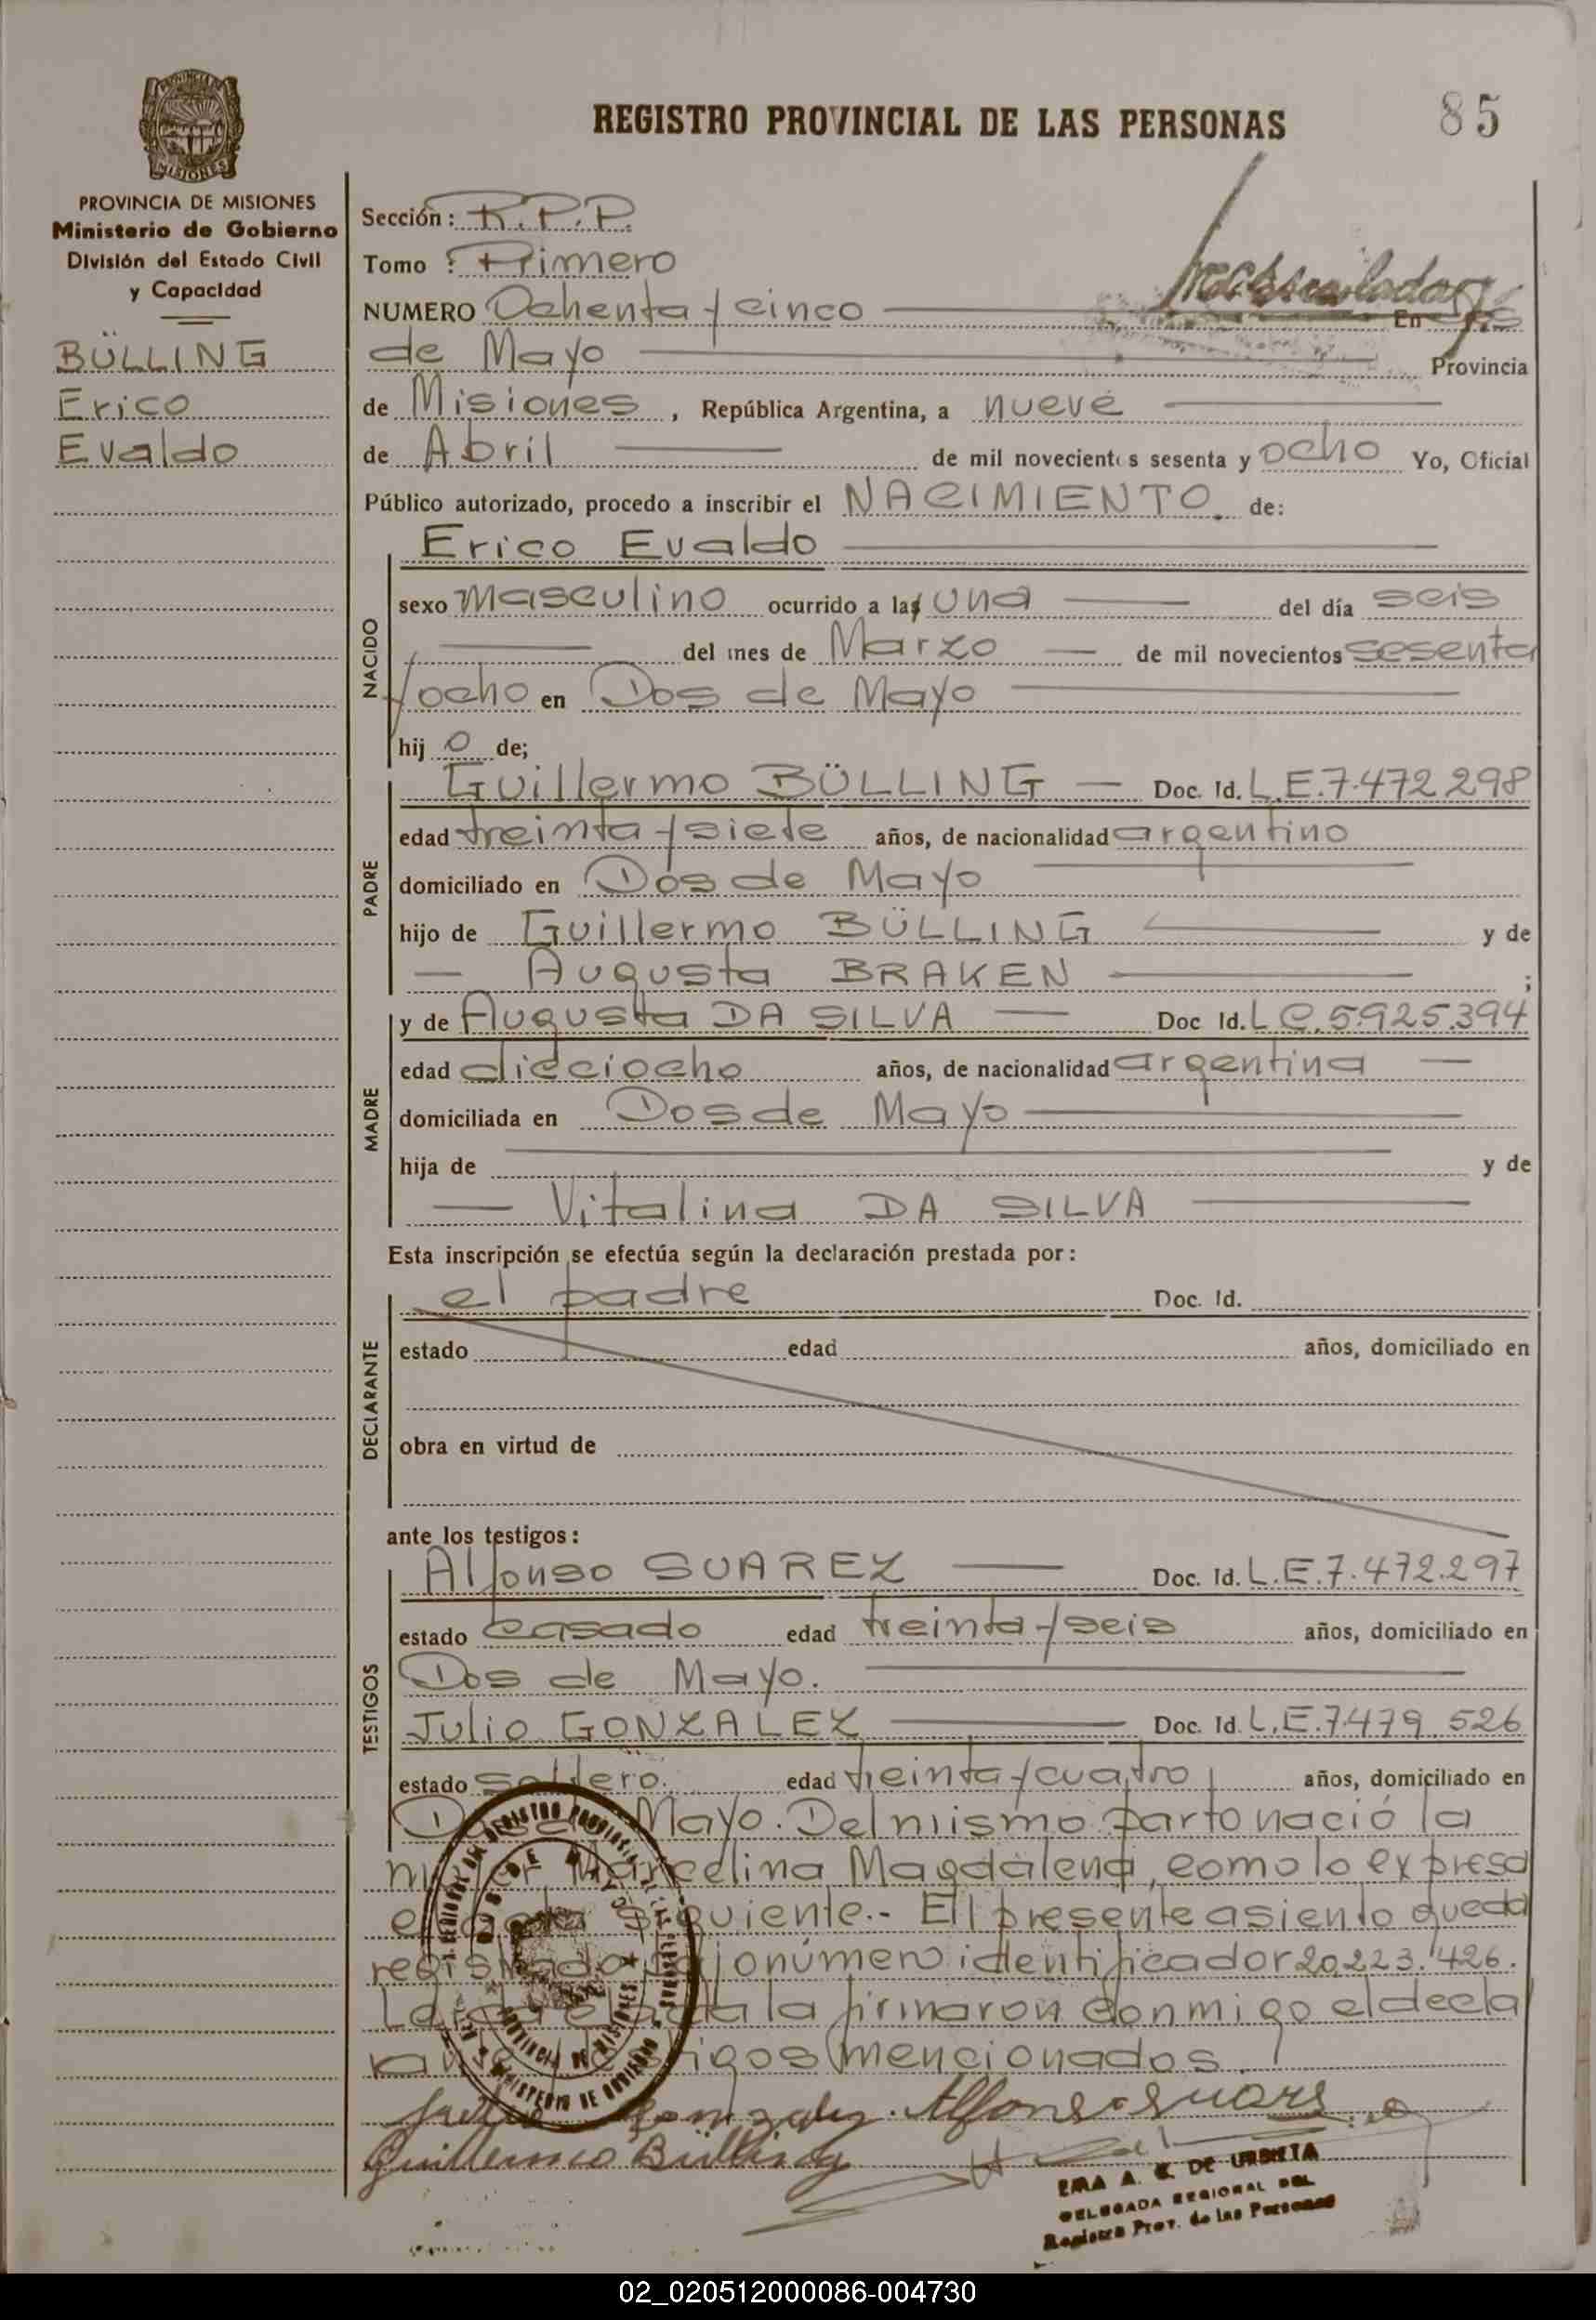 REGISTRO PROVINCIAL DE LAS PERSONAS
85
PROVINCIA DE MISIONES
Ministerio de Gobierno
División del Estado Civil
y Capacidad
BÜLLING
Erico
Evaldo
Sección: R.P.P.
Tomo: Primero
NUMERO Ochenta y cinco En Dos
de Mayo Provincia
de Misiones, República Argentina, a nueve
de Abril de mil novecientos sesenta y ocho Yo, Oficial
Público autorizado, procedo a inscribir el NACIMIENTO. de:
NACIDO
Erico Evaldo
sexo masculino ocurrido a las una del día seis
del mes de Marzo de mil novecientos sesenta
y ocho en Dos de Mayo
hij o de;
PADRE
Guillermo BÜLLING Doc. Id. L.E.7.472.298
edad treinta y siete años, de nacionalidad argentino
domiciliado en Dos de Mayo
hijo de Guillermo BÜLLING y de
Augusta BRAKEN ;
MADRE
y de Augusta DA SILVA Doc Id. L.C.5.925.394
edad dieciocho años, de nacionalidad argentina
domiciliada en Dos de Mayo
hija de y de
Vitalina DA SILVA
Esta inscripción se efectúa según la declaración prestada por:
DECLARANTE
el padre Doc. Id.
estado edad años, domiciliado en
obra en virtud de
ante los testigos:
TESTIGOS
Alfonso SUAREZ Doc. Id. L.E.7.472.297
estado casado edad treinta y seis años, domiciliado en
Dos de Mayo.
Julio GONZALEZ Doc. Id. L.E.7.479.526
estado soltero. edad treinta y cuatro años, domiciliado en
Dos de Mayo. Del mismo parto nació la
mujer Marcelina Magdalena, como lo expresa
el acta siguiente.- El presente asiento queda
registrado bajo número identificador 20.223.426.
Leida el acta la firmaron conmigo el decla
rante y testigos mencionados.
Julio Gonzalez. Alfonso Suarez
Guillermo Bülling
EMA A. C. DE URBIETA
DELEGADA REGIONAL DEL
Registro Prov. de las Personas
02_020512000086-004730